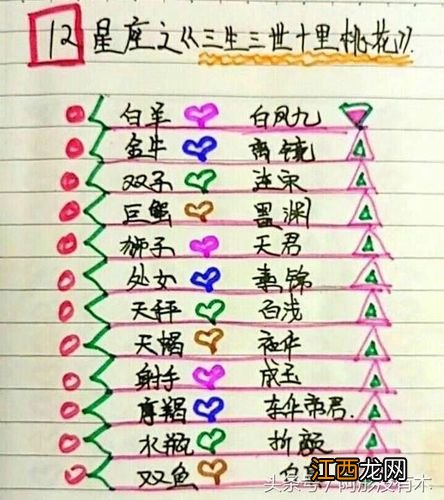 12星座之《三生三世十里桃花》
白羊 白凤九
金牛 离镜
双子 连宋
巨蟹 墨渊
狮子 天君
处女 素锦
天秤 白浅
天蝎 夜华
射手 成玉
摩羯 东华帝君
水瓶 折颜
双鱼 白
江西龙网
头条号
没有木